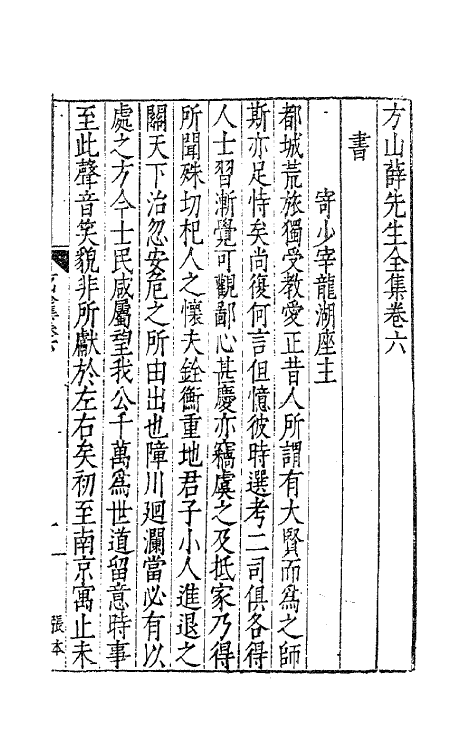 方山薛先生全集卷六
書
寄少宰龍湖座主
都城荒旅獨受教愛正昔人所謂有大賢而爲之師
斯亦足恃矣尚復何言但憶彼時選考二司俱各得
人士習漸覺可觀鄙心甚慶亦竊虞之及抵家乃得
所聞殊切杞人之懷夫銓衡重地君子小人進退之
關天下治忽安危之所由出也障川廻瀾當必有以
處之方今士民咸屬望我公千萬爲世道留意時事
至此聲音笑貌非所獻於左右矣初至南京寓止未
一
張本